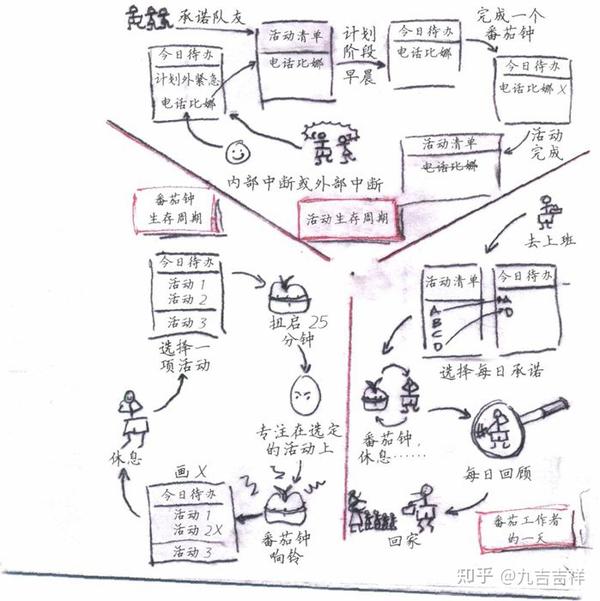 承诺队友
今日待办
计划外紧急
电话比娜
活动清单
电话比娜
计划
阶段
早晨
今日待办
电话比娜
完成一个
番茄钟
今日待办
电话比娜 X
活动
完成
活动清单
电话比娜
内部中断或外部中断
活动生存周期
番茄钟
生存周期
今日待办
活动 1
活动 2
活动 3
选择一
项活动
扭启 25
分钟
专注在选定
的活动上
番茄钟
响铃
画 X
今日待办
活动 1
活动 2X
活动 3
休息
去上班
活动清单
A
B
C
D
今日待办
A
D
选择每日承诺
番茄钟,
休息……
每日回顾
回家
番茄工作者
的一天
知乎 @九吉吉祥